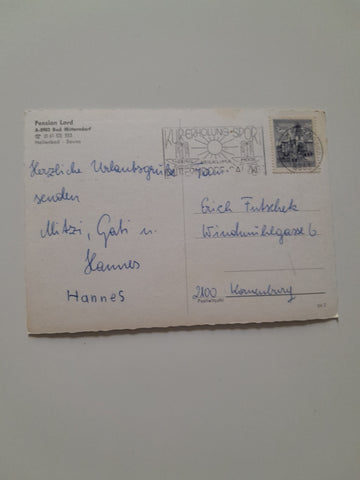 Pension Lord
A-8983 Bad Mitterndorf
Hallenbad - Sauna
KUR-ERHOLUNG-SPORT
Herzliche Urlaubsgrüße
senden
Mitzi, Gabi u.
Hannes
Hannes
Fam.
Erich Futschek
Windmühlgasse 6
2100 Korneuburg
Postleitzahl